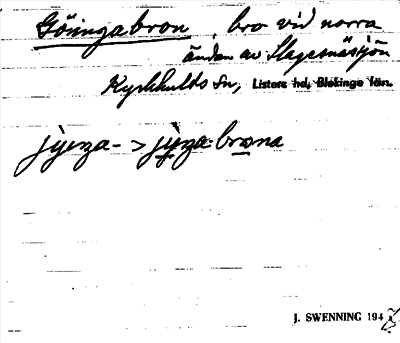 Göingabron, bro vid norra
ändan av Slagesnässjön
Kyrkhults Sn, Listers hd, Blekinge län.
jyenza- > jynza-brona
J. SWENNING 194